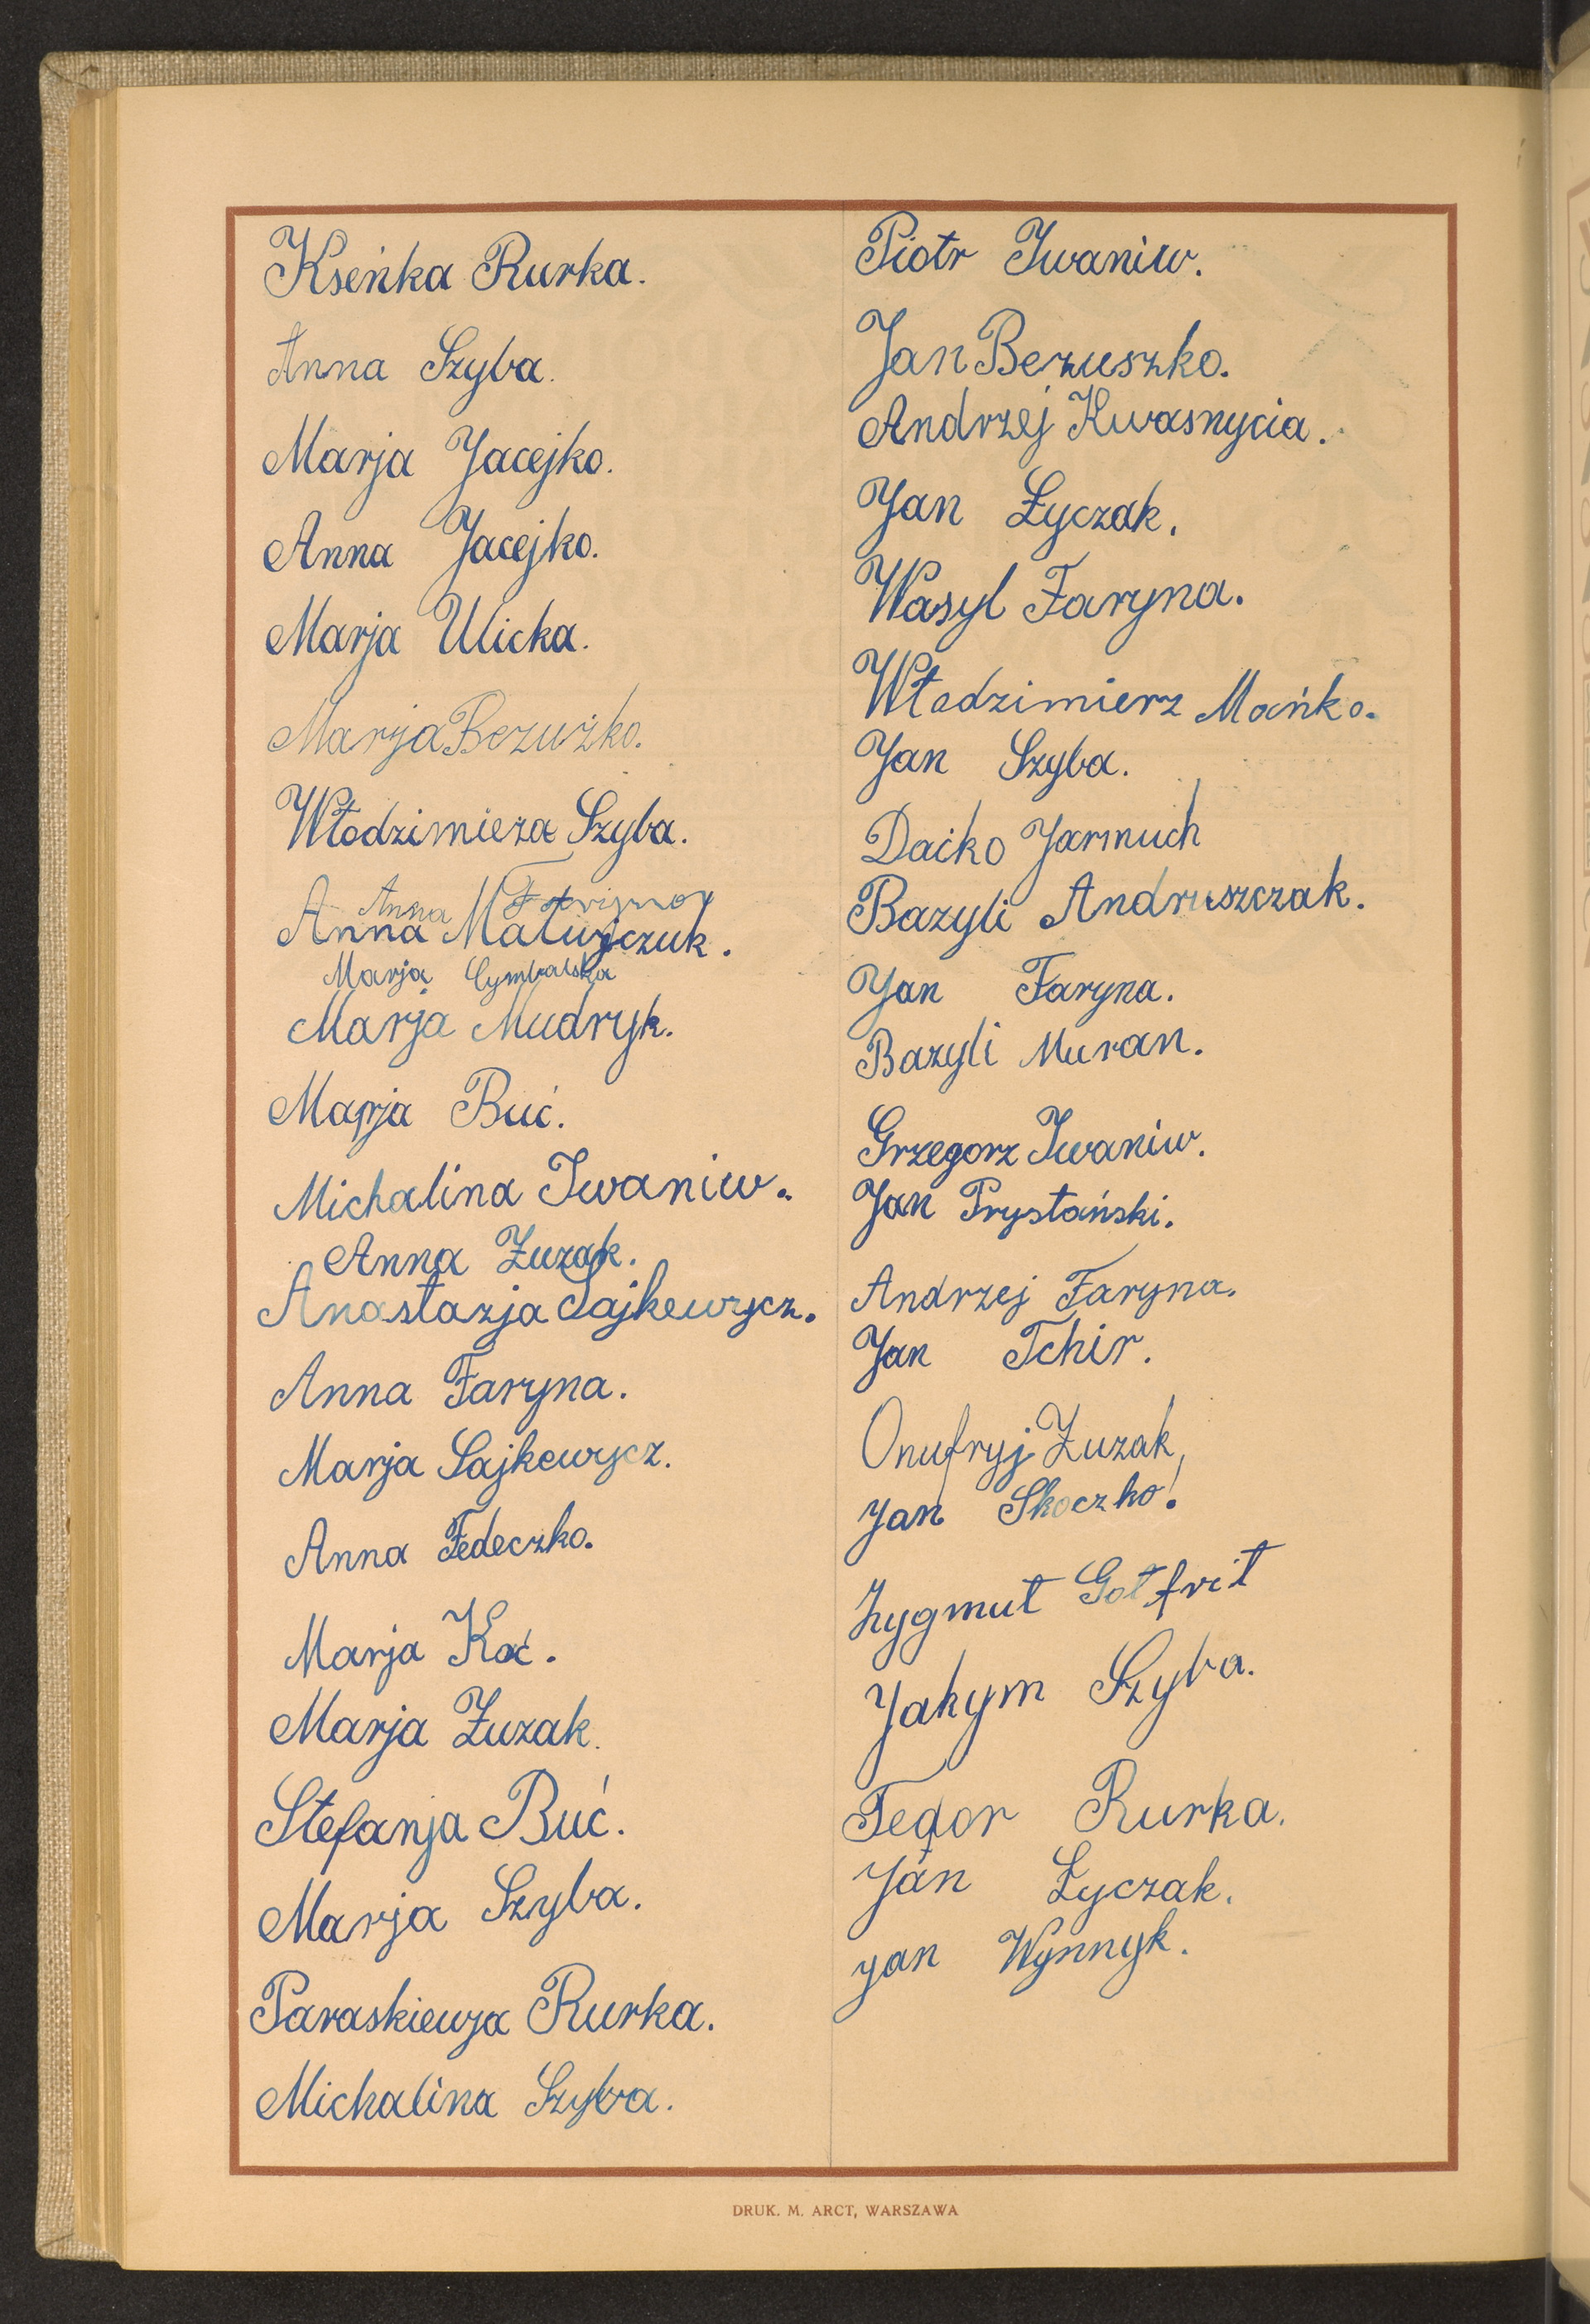 Kseńka Rurka.
Anna Szyba.
Marja Jacejko.
Anna Jacejko.
Marja Ulicka.
Marja Bezużko.
Włodzimiera Szyba.
Anna
Anna Matwjczuk.
Marja Cymbalska
Marja Mudryk.
Marja Buć.
Michalina Iwaniw.
Anna Zuzak.
Anastazja Sajkewycz.
Anna Faryna.
Marja Sajkewycz.
Anna Fedeczko.
Marja Koć.
Marja Zuzak.
Stefanja Buć.
Marja Szyba.
Paraskiewja Rurka.
Michalina Szyba.
Piotr Iwaniw.
Jan Bezuszko.
Andrzej Kwasnycia.
Jan Łyczak.
Wasyl Faryna.
Włodzimierz Mańko.
Jan Szyba.
Daćko Jarmuch
Bazyli Andruszczak.
Jan Faryna.
Bazyli Muran.
Grzegorz Iwaniw.
Jan Prystański.
Andrzej Faryna.
Jan Tchir.
Onufryj Zuzak,
Jan Skoczko.
Zygmut Gotfrit
Jakym Szyba.
Fedor Rurka.
Jan Łyczak.
Jan Wynnyk.
DRUK. M. ARCT, WARSZAWA